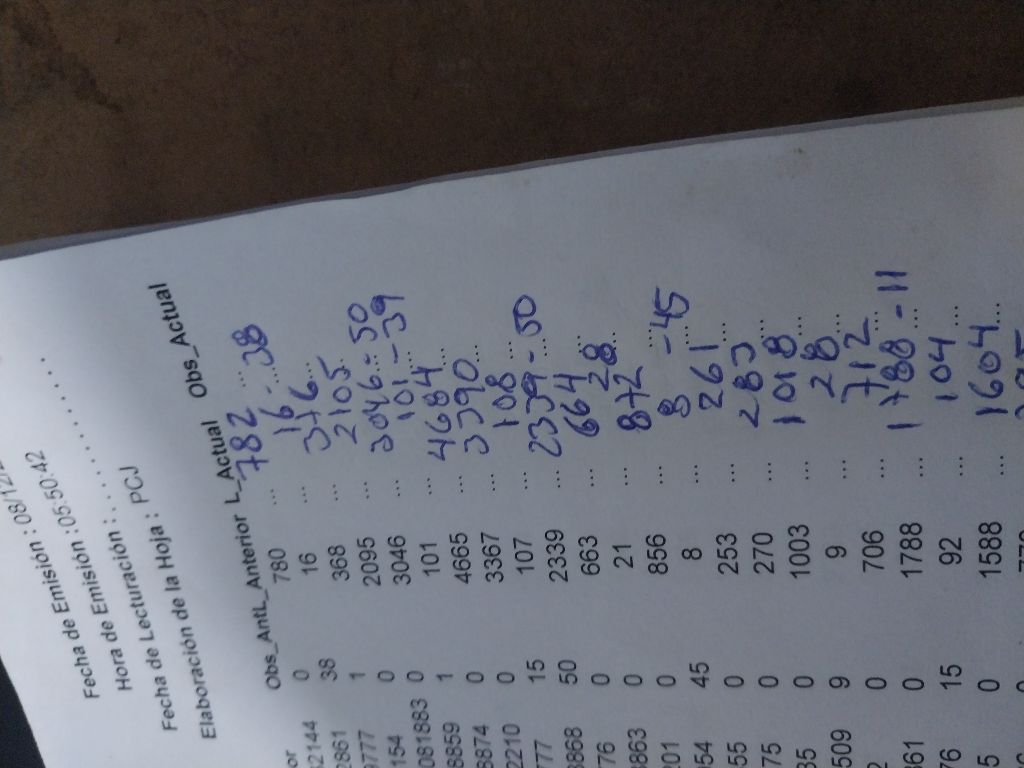 Fecha de Emisión : 08/12/
Hora de Emisión : 05:50:42
Fecha de Lecturación : . . . . . . . . . . . . . . .
Elaboración de la Hoja : PCJ
or Obs_Ant L_Anterior L_Actual Obs_Actual
2144 0 780 ... 782 ...
2861 38 16 ... 16 ... - 38
9777 1 368 ... 376 ...
154 0 2095 ... 2105 ...
081883 0 3046 ... 3046 ... - 50
8859 1 101 ... 101 ... - 39
8874 0 4665 ... 4684 ...
2210 0 3367 ... 3390 ...
777 15 107 ... 108 ...
8868 50 2339 ... 2339 - 50
76 0 663 ... 664 ...
8863 0 21 ... 28 ...
01 0 856 ... 872 ...
54 45 8 ... 8 ... - 45
55 0 253 ... 261 ...
75 0 270 ... 283 ...
35 0 1003 ... 1018 ...
509 9 9 ... 28 ...
2 0 706 ... 712 ...
361 0 1788 ... 1788 ... - 11
76 15 92 ... 104 ...
5 0 1588 ... 1604 ...